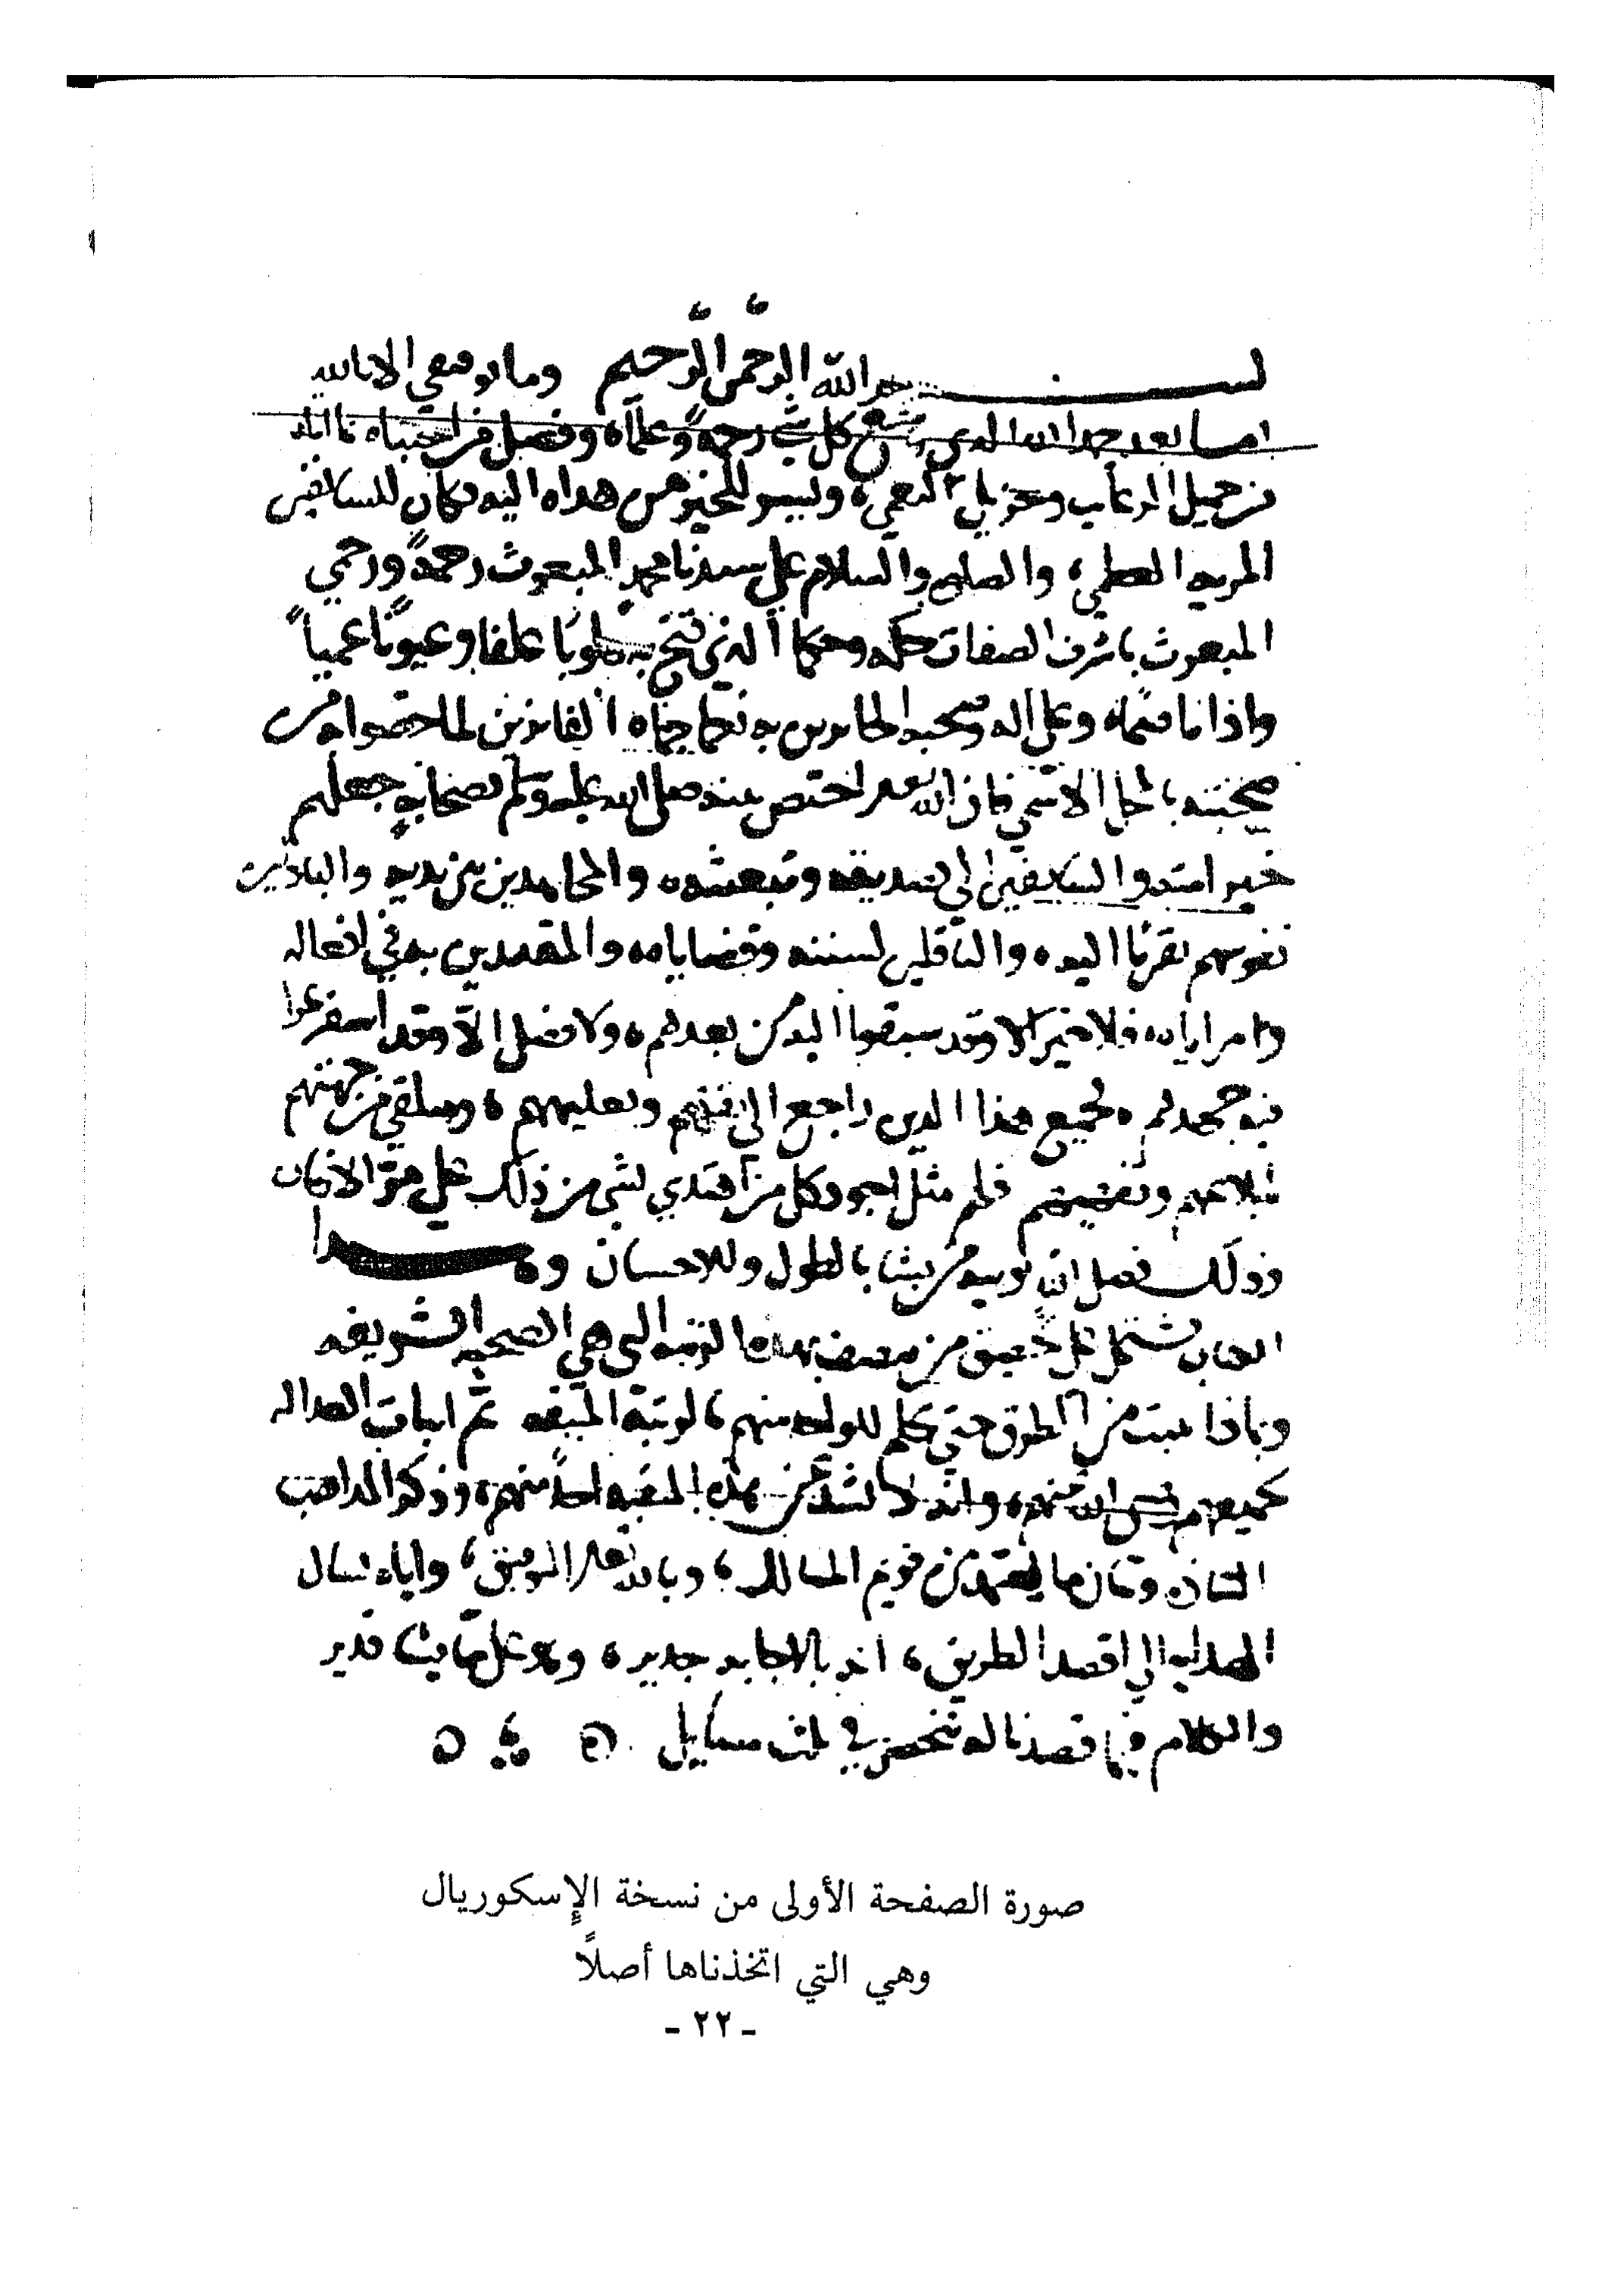 بسم الله الرحمن الرحيم وما توفيقي الا بالله
اما بعد حمد الله الذي وسع كل شي رحمةً وعلماً وفضل من اجتباه بما اناله
من جميل المراتب وجزيل النعمى، ويسر للخير من هداه اليه فكان للسابقين
المزيه العظمى، والصلوه والسلام على سيدنا محمد المبعوث رحمةً ورحمى
المبعوث باشرف الصفات حكمه وحكما الذي فتح به قلوبًا غلفا وعيونًا عمياً
واذانا صماه وعلى اله وصحبه الفايزين لما اختصوا به من
صحبته بالمحل الاسمى فان الله تعلى اختص نبيه صلى الله عليه وسلم بصحابةٍ جعلهم
خير امته والسابقين الى تصديقه وتبعيته والمجاهدين بين يديه والباذلين
نفوسهم تقربًا اليه والناقلين لسننه وقضاياه والمقتدين به في افعاله
ومزاياه فلا خير الا وقد سبقوا اليه من بعدهم ولا فضل الا وقد استفرغوا
فيه جهدهم فجميع هذا الدين راجع الى نقلهم وتعليمهم ومتلقى من جهتهم
بابلاغهم وتفهيمهم فلهم مثل اجور كل من اقتدى بشي من ذلك على مر الازمان
وذلك فضل الله يوتيه من يشا بالطول والاحسان وهذا
الكتاب يشتمل على تحقيق من يتصف بهذه الرتبه التي هي الصحبه الشريفه
وبماذا يثبت من الطرق حتى يحكم للواحد منهم بالرتبة المنيفه ثم اثبات العداله
لجميعهم رضي الله عنهم وانه لا يشذ عن هذه المنقبه احدً منهم وذكر المذاهب
الشاذه وبيان ما يعتمد من قويم المسالك، وبالله تعلى التوفيق، واياه نسال
الهدايه الى اقصد الطريق، انه بالاجابه جدير، وهو على ما يشا قدير
والكلام فيما قصدناله ينحصر في ثلث مسايل
صورة الصفحة الأولى من نسخة الإسكوريال
وهي التي اتخذناها أصلاً
- ٢٢ -